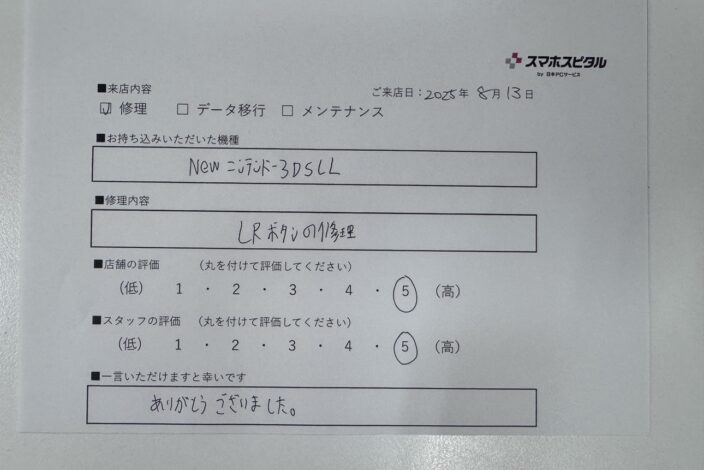 スマホスピタル
by 日本PCサービス
■来店内容
ご来店日：2025年 8月 13日
☑ 修理 □ データ移行 □ メンテナンス
■お持ち込みいただいた機種
New ニンテンドー3DSLL
■修理内容
LRボタンの修理
■店舗の評価 （丸を付けて評価してください）
（低） 1 ・ 2 ・ 3 ・ 4 ・ 5 （高）
■スタッフの評価 （丸を付けて評価してください）
（低） 1 ・ 2 ・ 3 ・ 4 ・ 5 （高）
■一言いただけますと幸いです
ありがとうございました。